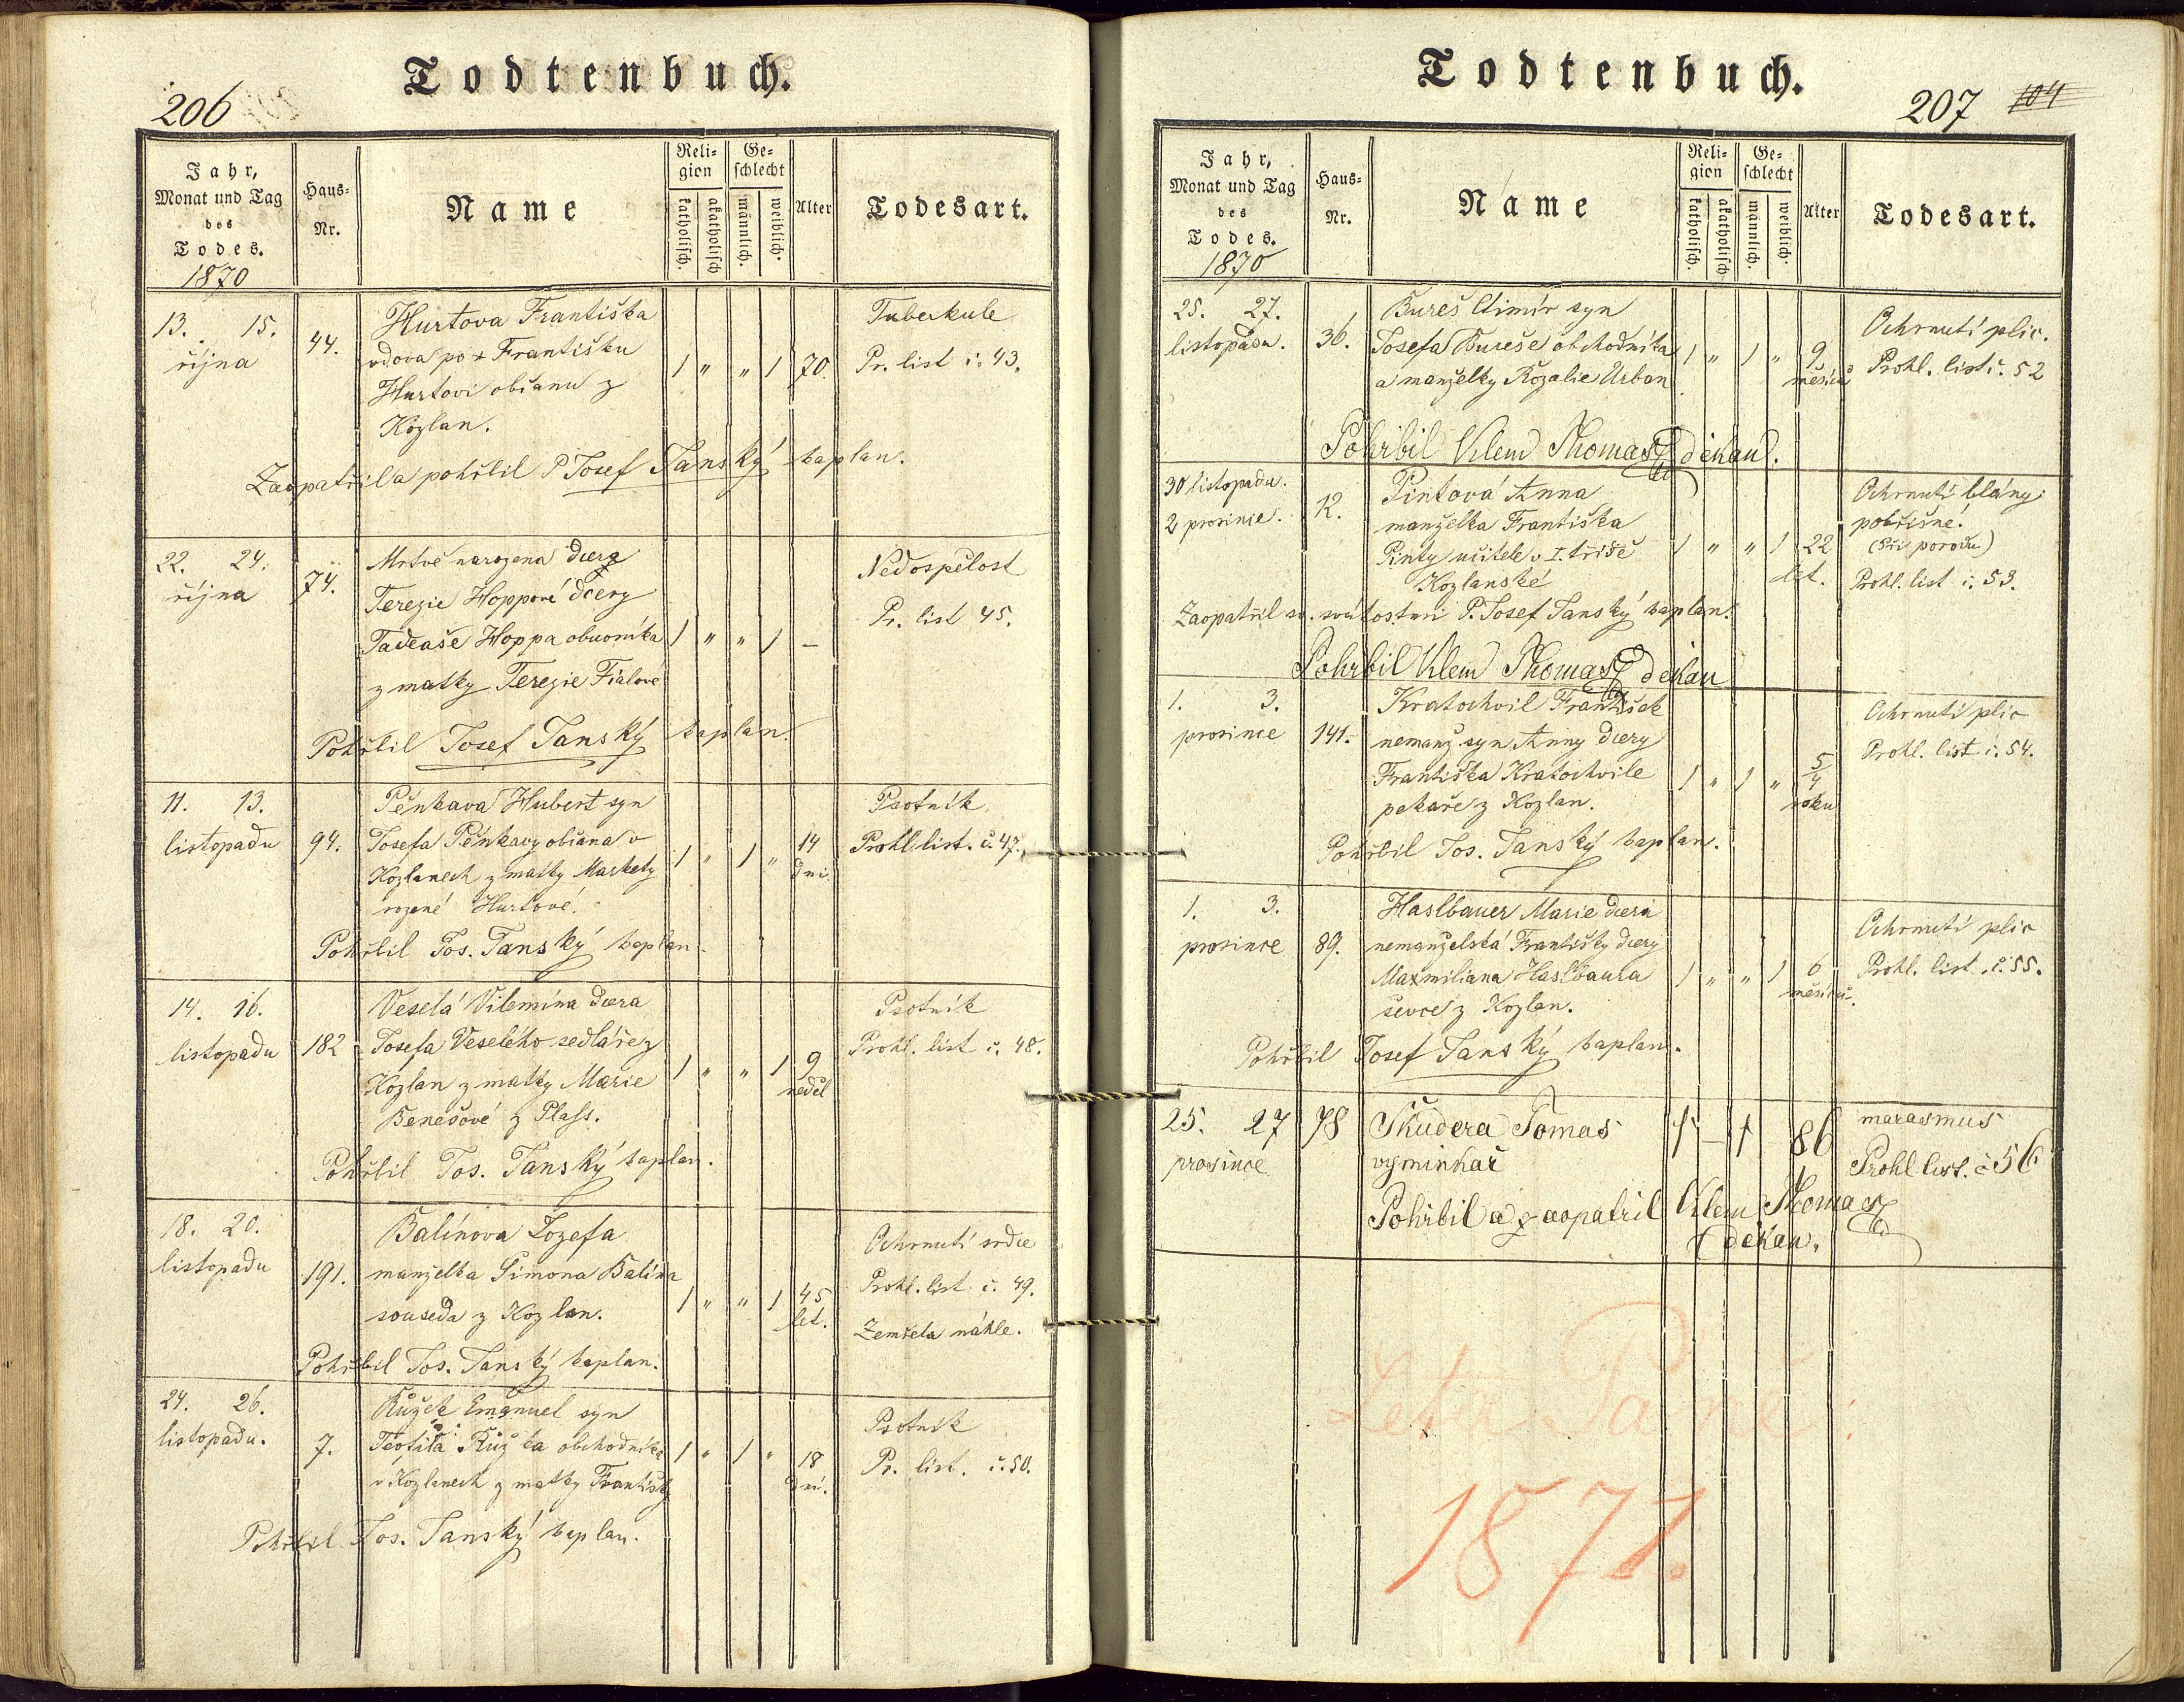 206
Todtenbuch.
Jahr,
Monat und Tag
des
Todes.
1870
Haus-
Nr.
Name
Reli-
gion
katholisch.
akatholisch
Ge-
schlecht
männlich.
weiblich.
Alter
Todesart.
13. 15.
října
44.
Hurtova Františka
vdova po + Františku
Hurtovi občanu z
Kozlan.
1 " " 1 70.
Tuberkule
Pr. list č. 43.
Zaopatřil a pohřbil P Josef Janský kaplan.
22. 24.
října
74.
Mrtvě narozena dcera
Terezie Hoppové dcery
Tadeaše Hoppa obuvníka
z matky Terezie Fialové
1 " " 1 –
Nedospělost
Pr. list 45.
Pohřbil Josef Janský kaplan.
11. 13.
listopadu
94.
Pěnkava Hubert syn
Josefa Pěnkavy občana v
Kozlanech z matky Markety
rozené Hurtové.
1 " 1 " 14
dní
Psotník
Prohl list. č. 47.
Pohřbil Jos. Janský kaplan.
14. 16.
listopadu
182
Veselá Vilemína dcera
Josefa Veselého sedláře z
Kozlan z matky Marie
Benešové z Plass.
1 " " 1 9
neděl
Psotník
Prohl. list č. 48.
Pohřbil Jos. Janský kaplan.
18. 20.
listopadu
191.
Balínova Jozefa
manželka Šimona Balína
souseda z Kozlan.
1 " " 1 45
let.
Ochrnutí srdce
Prohl. list č. 49.
Zemřela náhle.
Pohřbil Jos. Janský kaplan.
24. 26.
listopadu.
7.
Růžek Emanuel syn
Teofila Růžka obchodníka
v Kozlanech z matky Františky
1 " 1 " 18
dní.
Psotník
Pr. list. č. 50.
Pohřbil Jos. Janský kaplan.
Todtenbuch.
207 104
Jahr,
Monat und Tag
des
Todes.
1870
Haus-
Nr.
Name
Reli-
gion
katholisch.
akatholisch
Ge-
schlecht
männlich.
weiblich.
Alter
Todesart.
25. 27.
listopadu.
36.
Bureš syn
Josefa Bureše obchodníka
a manželky Rozalie Urban
1 " 1 " 9
měsíců
Ochrnutí plic.
Prohl. list č. 52
Pohřbil Klem Thomas děkan.
30 listopadu.
2 prosince.
12.
Pintová Anna
manželka Františka
Pinty učitele v I. třídě
Kozlanské
1 " " 1 22
let.
Ochrnutí blány
pobřišné.
(při porodu)
Prohl. list č. 53.
Zaopatřil sv. svátostmi P. Josef Janský kaplan.
Pohřbil Klem Thomas děkan
1. 3.
prosince
141.
Kratochvil František
nemanž. syn Anny dcery
Františka Kratochvile
pekaře z Kozlan.
1 " 1 " 5/4
roku
Ochrnutí plic
Prohl. list č. 54.
Pohřbil Jos. Janský kaplan.
1. 3.
prosince
89.
Haslbauer Marie dcera
nemanželská Františky dcery
Maxmiliana Haslbaura
ševce z Kozlan.
1 " " 1 6
měsíců.
Ochrnutí plic
Prohl. list. č. 55.
Pohřbil Josef Janský kaplan.
25. 27
prosince
78
Škudera Tomas
vyminkař
1 – 1 86
marasmus
Prohl list. č 56
Pohřbil a zaopatřil Klem Thomas
děkan.
Leta Páně
1871.